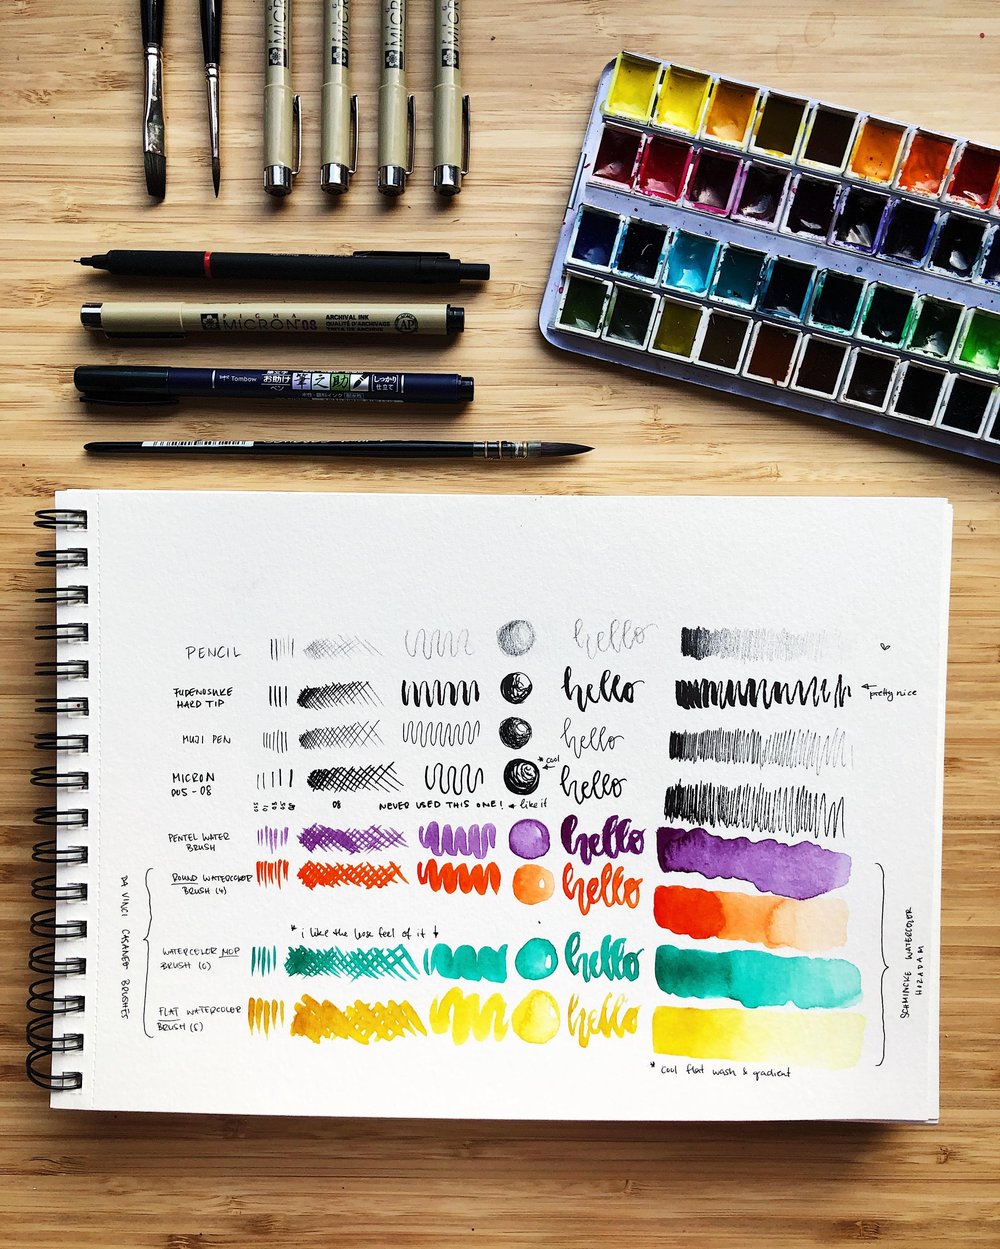 MICRON
MICRON
MICRON
MICRON
PIGMA
MICRON 08
ARCHIVAL INK
QUALITÉ D'ARCHIVAGE
AP
Tombow
お助け
ペン
筆之助
しっかり
仕立て
水性・顔料インク
PENCIL
hello
FUDENOSUKE
HARD TIP
hello
← pretty nice
MUJI PEN
hello
MICRON
005-08
* cool
hello
005 01 03 05 08
08
NEVER USED THIS ONE! ← like it
PENTEL WATER
BRUSH
hello
ROUND WATERCOLOR
BRUSH (4)
hello
* i like the loose feel of it ↓
WATERCOLOR MOP
BRUSH (0)
hello
FLAT WATERCOLOR
BRUSH (5)
hello
* cool flat wash & gradient
DA VINCI CASANEO BRUSHES
SCHMINCKE WATERCOLOR
HORADAM